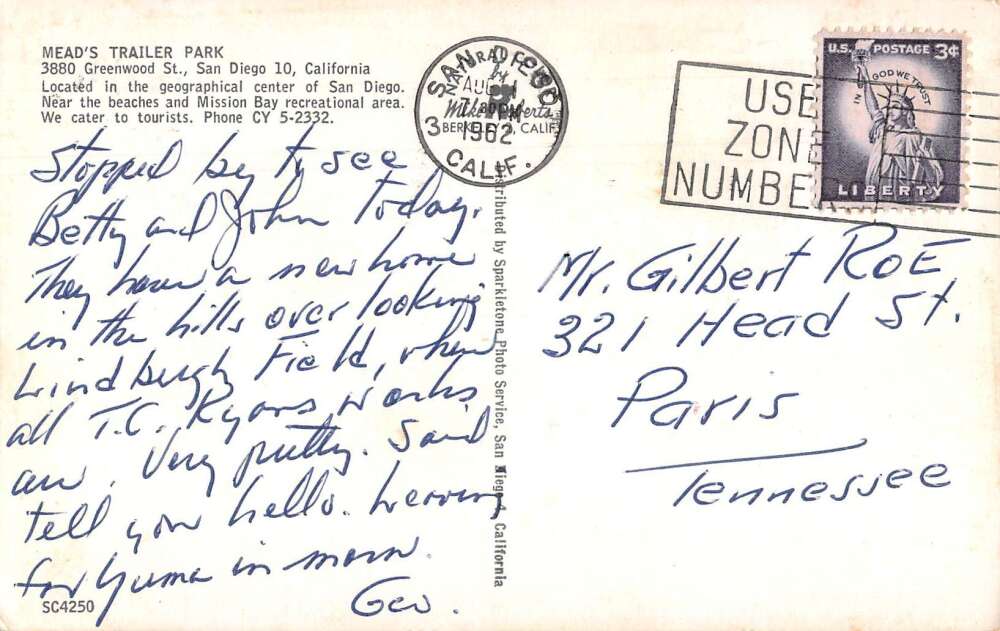 MEAD'S TRAILER PARK
3880 Greenwood St., San Diego 10, California
Located in the geographical center of San Diego.
Near the beaches and Mission Bay recreational area.
We cater to tourists. Phone CY 5-2332.
Stopped by to see
Betty and John today.
They have a new home
in the hills over looking
Lindbergh Field, where
all T.C. Ryans works
are. Very pretty. Said
tell you hello. Leaving
for Yuma in morn.
Geo.
SC4250
SAN DIEGO
AUG
PM
1962
3
CALIF.
NATURAL COLOR
by
Mike Roberts
BERKELEY CALIF.
Distributed by Sparkletone Photo Service, San Diego 4, California
USE
ZONE
NUMBER
U.S. POSTAGE 3¢
IN GOD WE TRUST
LIBERTY
Mr. Gilbert ROE
321 Head St.
Paris
Tennessee